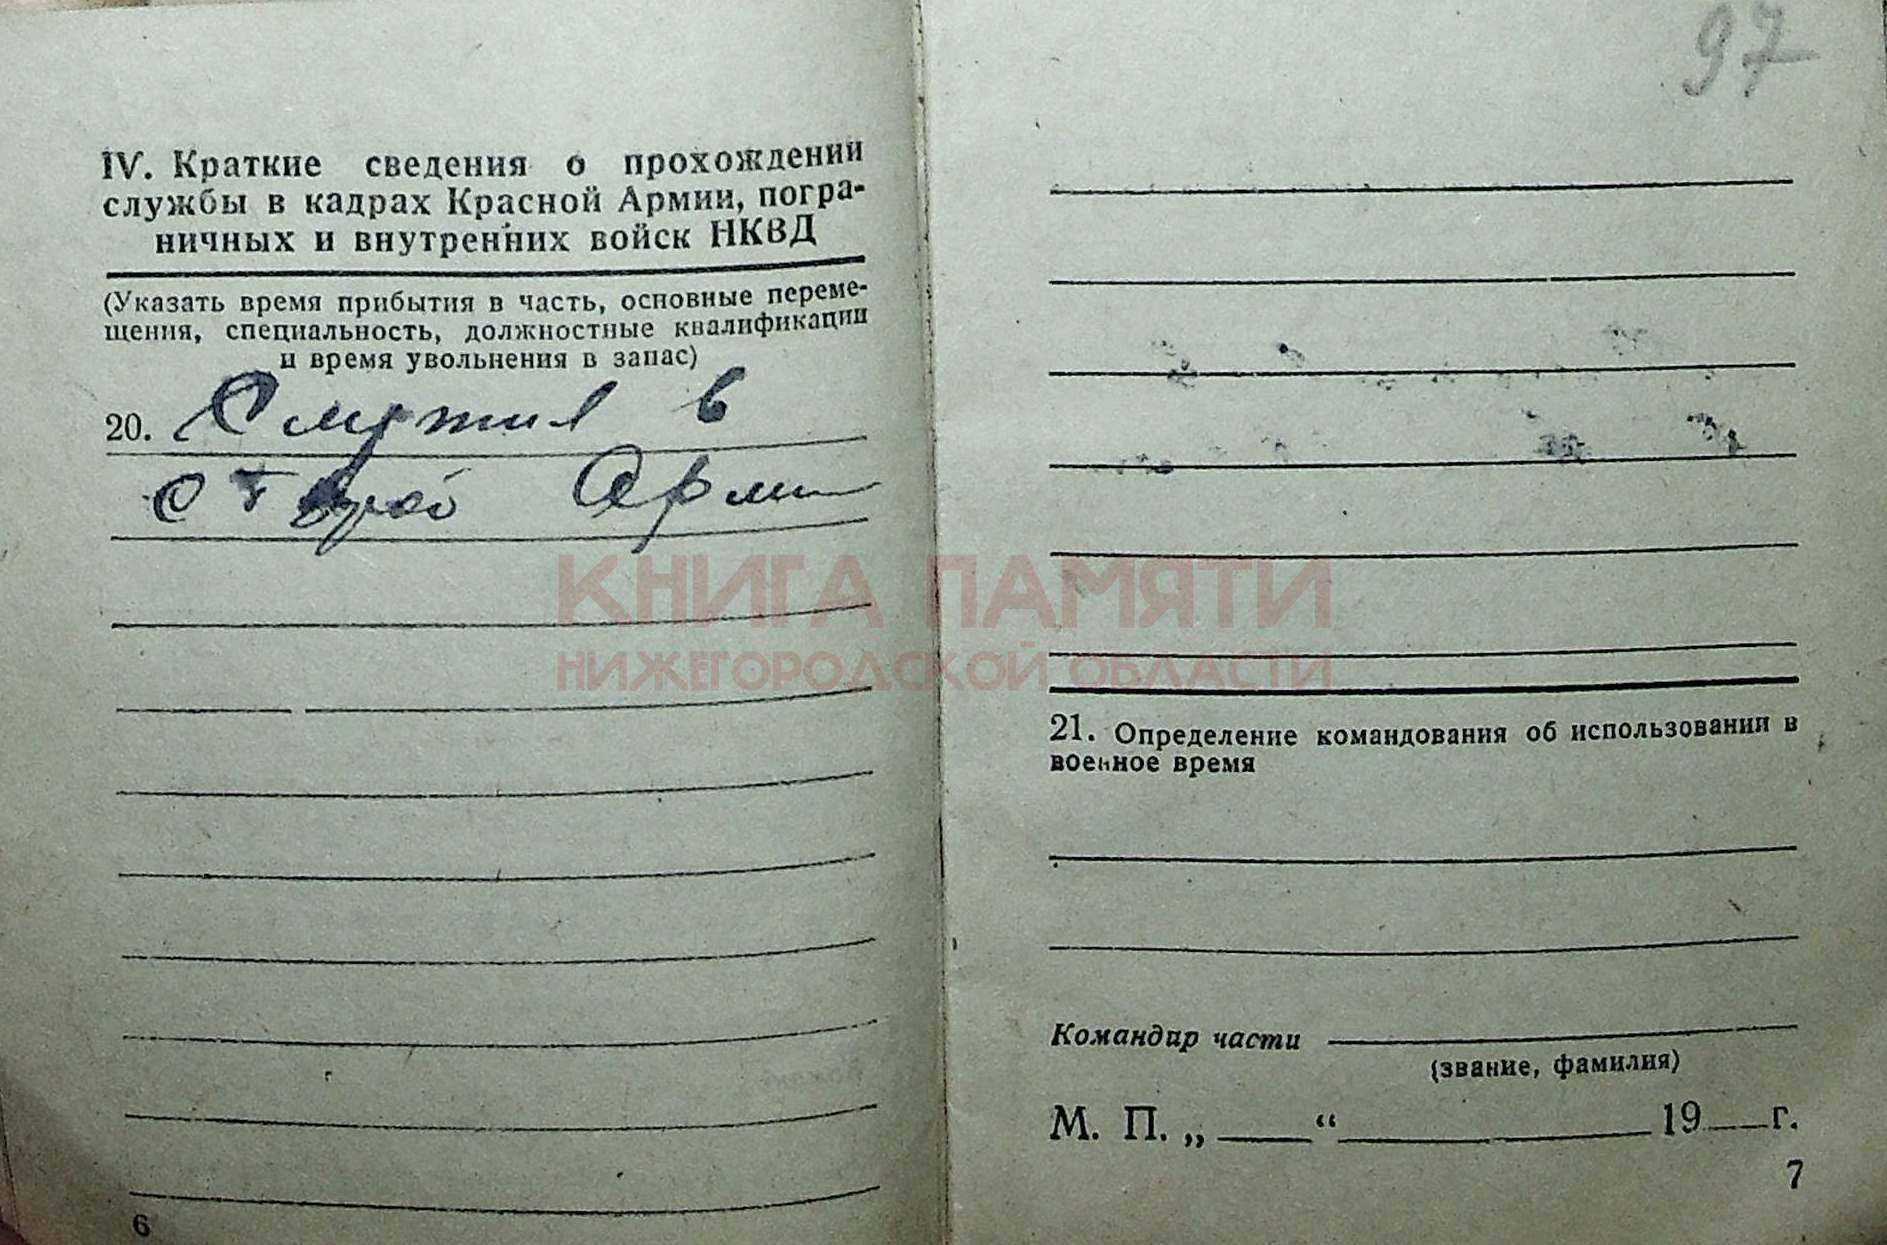 97
IV. Краткие сведения о прохождении
службы в кадрах Красной Армии, погра-
ничных и внутренних войск НКВД
(Указать время прибытия в часть, основные переме-
щения, специальность, должностные квалификации
и время увольнения в запас)
20. Служил в
старой Арми
КНИГА ПАМЯТИ
НИЖЕГОРОДСКОЙ ОБЛАСТИ
6
21. Определение командования об использовании в
военное время
Командир части
(звание, фамилия)
М. П. „ “ 19 г.
7